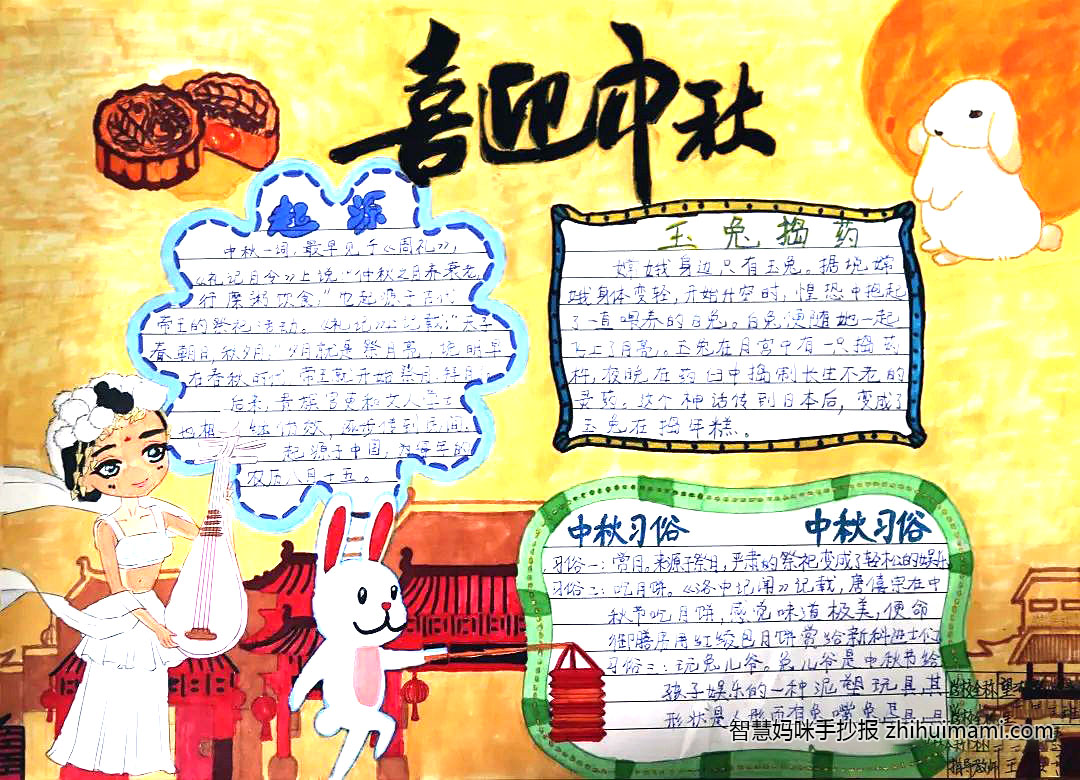 喜迎中秋
起源
中秋一词，最早见于《周礼》，
《礼记月令》上说："仲秋之月养衰老，
行糜粥饮食。"
帝王的祭祀活动。《礼记》上记载："天子
春朝日，秋夕月，"夕月就是祭月亮，说明早
在春秋时代，帝王就开始祭月、拜月
后来，贵族官吏和文人学士
起源于中国，为每年的
农历八月十五。
玉兔捣药
嫦娥身边只有玉兔。据说嫦
娥身体变轻，开始升空时，惶恐中抱起
了一直喂养的白兔。白兔便随她一起
飞上了月亮。玉兔在月宫中有一只捣药
杵，夜晚在药臼中捣制长生不老的
灵药。这个神话传到日本后，变成了
玉兔在捣年糕。
中秋习俗 中秋习俗
习俗一：赏月。来源于祭月，严肃的祭祀变成了轻松的娱乐
习俗二：吃月饼。《洛中记闻》记载，唐僖宗在中
秋节吃月饼，感觉味道极美，便命
御膳房用红绫包月饼赏给新科进士们
习俗三：玩兔儿爷。兔儿爷是中秋节给
孩子娱乐的一种泥塑玩具，其
形状是
智慧妈咪手抄报 zhihuimami.com
指导教师